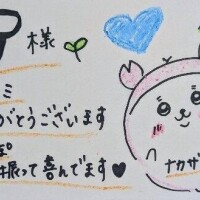 様
ミ
がとうございます
ぽ
振って喜んでます♥
ナカザ